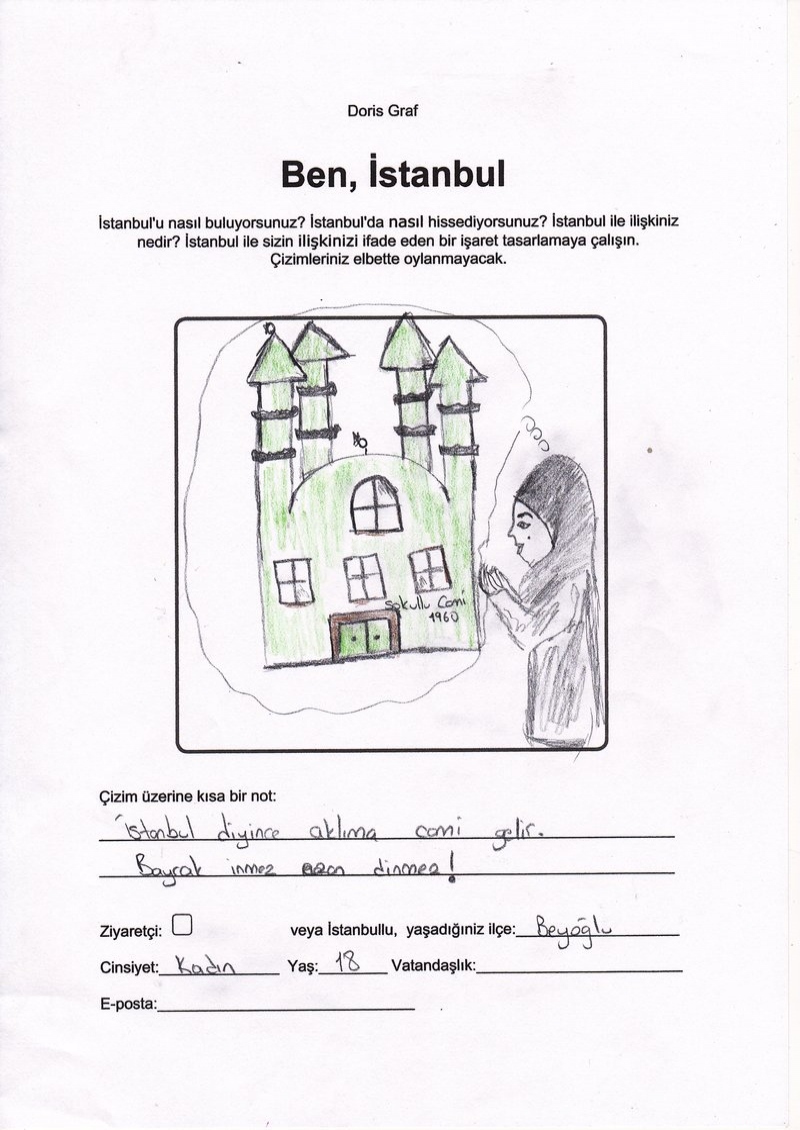 Doris Graf
Ben, İstanbul
İstanbul'u nasıl buluyorsunuz? İstanbul'da nasıl hissediyorsunuz? İstanbul ile ilişkiniz
nedir? İstanbul ile sizin ilişkinizi ifade eden bir işaret tasarlamaya çalışın.
Çizimleriniz elbette oylanmayacak.
Sokullu Cami
1960
Çizim üzerine kısa bir not:
İstanbul diyince aklıma cami gelir.
Bayrak inmez ezan dinmez!
Ziyaretçi: veya İstanbullu, yaşadığınız ilçe: Beyoğlu
Cinsiyet: Kadın Yaş: 18 Vatandaşlık:
E-posta: